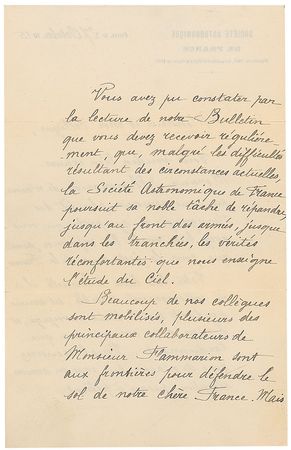 Vous avez pu constater par
la lecture de notre Bulletin
que vous devez recevoir régulière
ment, que, malgré les difficultés
résultant des circonstances actuelles,
la Société Astronomique de France
poursuit sa noble tâche de répandre,
jusqu'au front des armées, jusque
dans les tranchées, les vérités
réconfortantes que nous enseigne
l'étude du Ciel.
Beaucoup de nos collègues
sont mobilisés, plusieurs des
principaux collaborateurs de
Monsieur Flammarion sont
aux frontières pour défendre le
sol de notre chère France. Mais